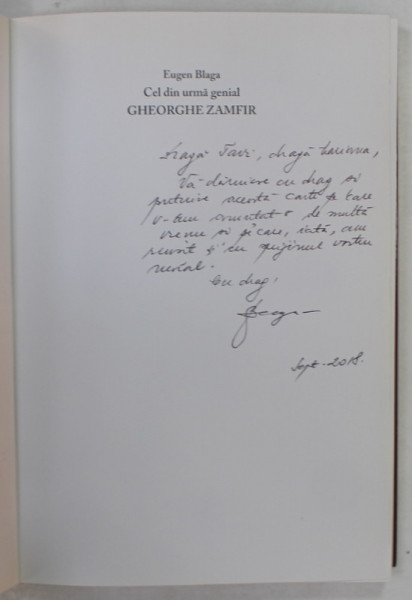 Eugen Blaga
Cel din urmă genial
GHEORGHE ZAMFIR
Dragă Tavi, dragă Mariana,
Vă dăruiesc cu drag și
prețuire această carte pe care
v-am de multă
vreme și pe care, iată, am
reușit și cu sprijinul vostru
Cu drag,
Sept. 2018.